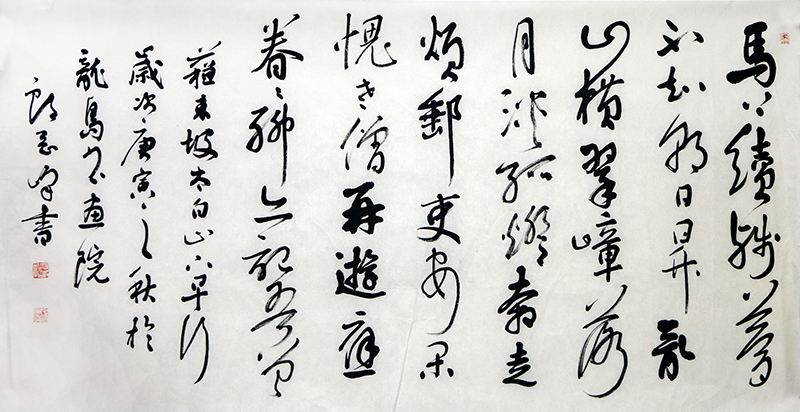 馬上續殘夢
不知朝日昇亂
山横翠嶂落
月淡孤燈奔走
煩郵吏安閑
愧老僧再遊應
眷々聊亦記吾曾
蘇東坡太白山下早行
歲次庚寅之秋於
龍畫院
書